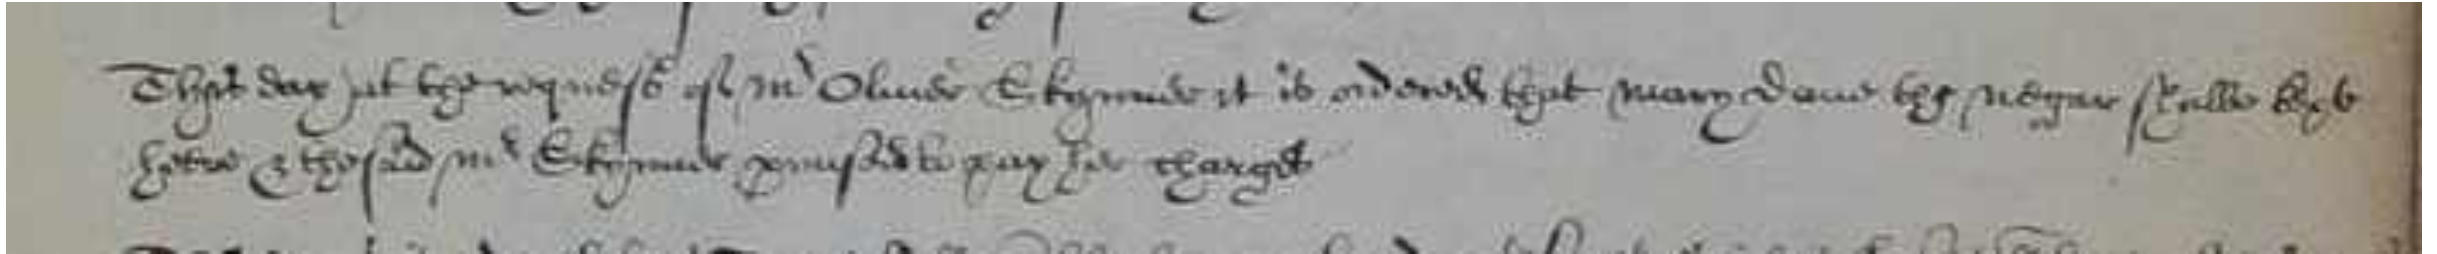 This day at the request of mr Oliver Skynner it is ordered that mary Dane the negar shalbe kept
here & the said mr Skynner promised to pay her charges